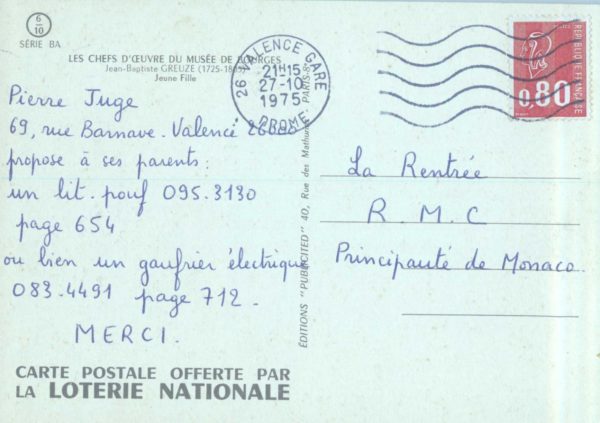 6
10
SÉRIE BA
LES CHEFS D'ŒUVRE DU MUSÉE DE BOURGES
Jean-Baptiste GREUZE (1725-1805)
Jeune Fille
Pierre Juge
69, rue Barnave. Valence 26000
propose à ses parents :
un lit. pouf 095.3130
page 654
ou bien un gaufrier électrique
083.4491 page 712.
MERCI.
CARTE POSTALE OFFERTE PAR
LA LOTERIE NATIONALE
26 VALENCE GARE
21H15
27-10
1975
DROME
ÉDITIONS "PUBLICITED" 40, Rue des Mathurins PARIS-8e
REPUBLIQUE FRANÇAISE
0,80
La Rentrée
R. M. C
Principauté de Monaco.